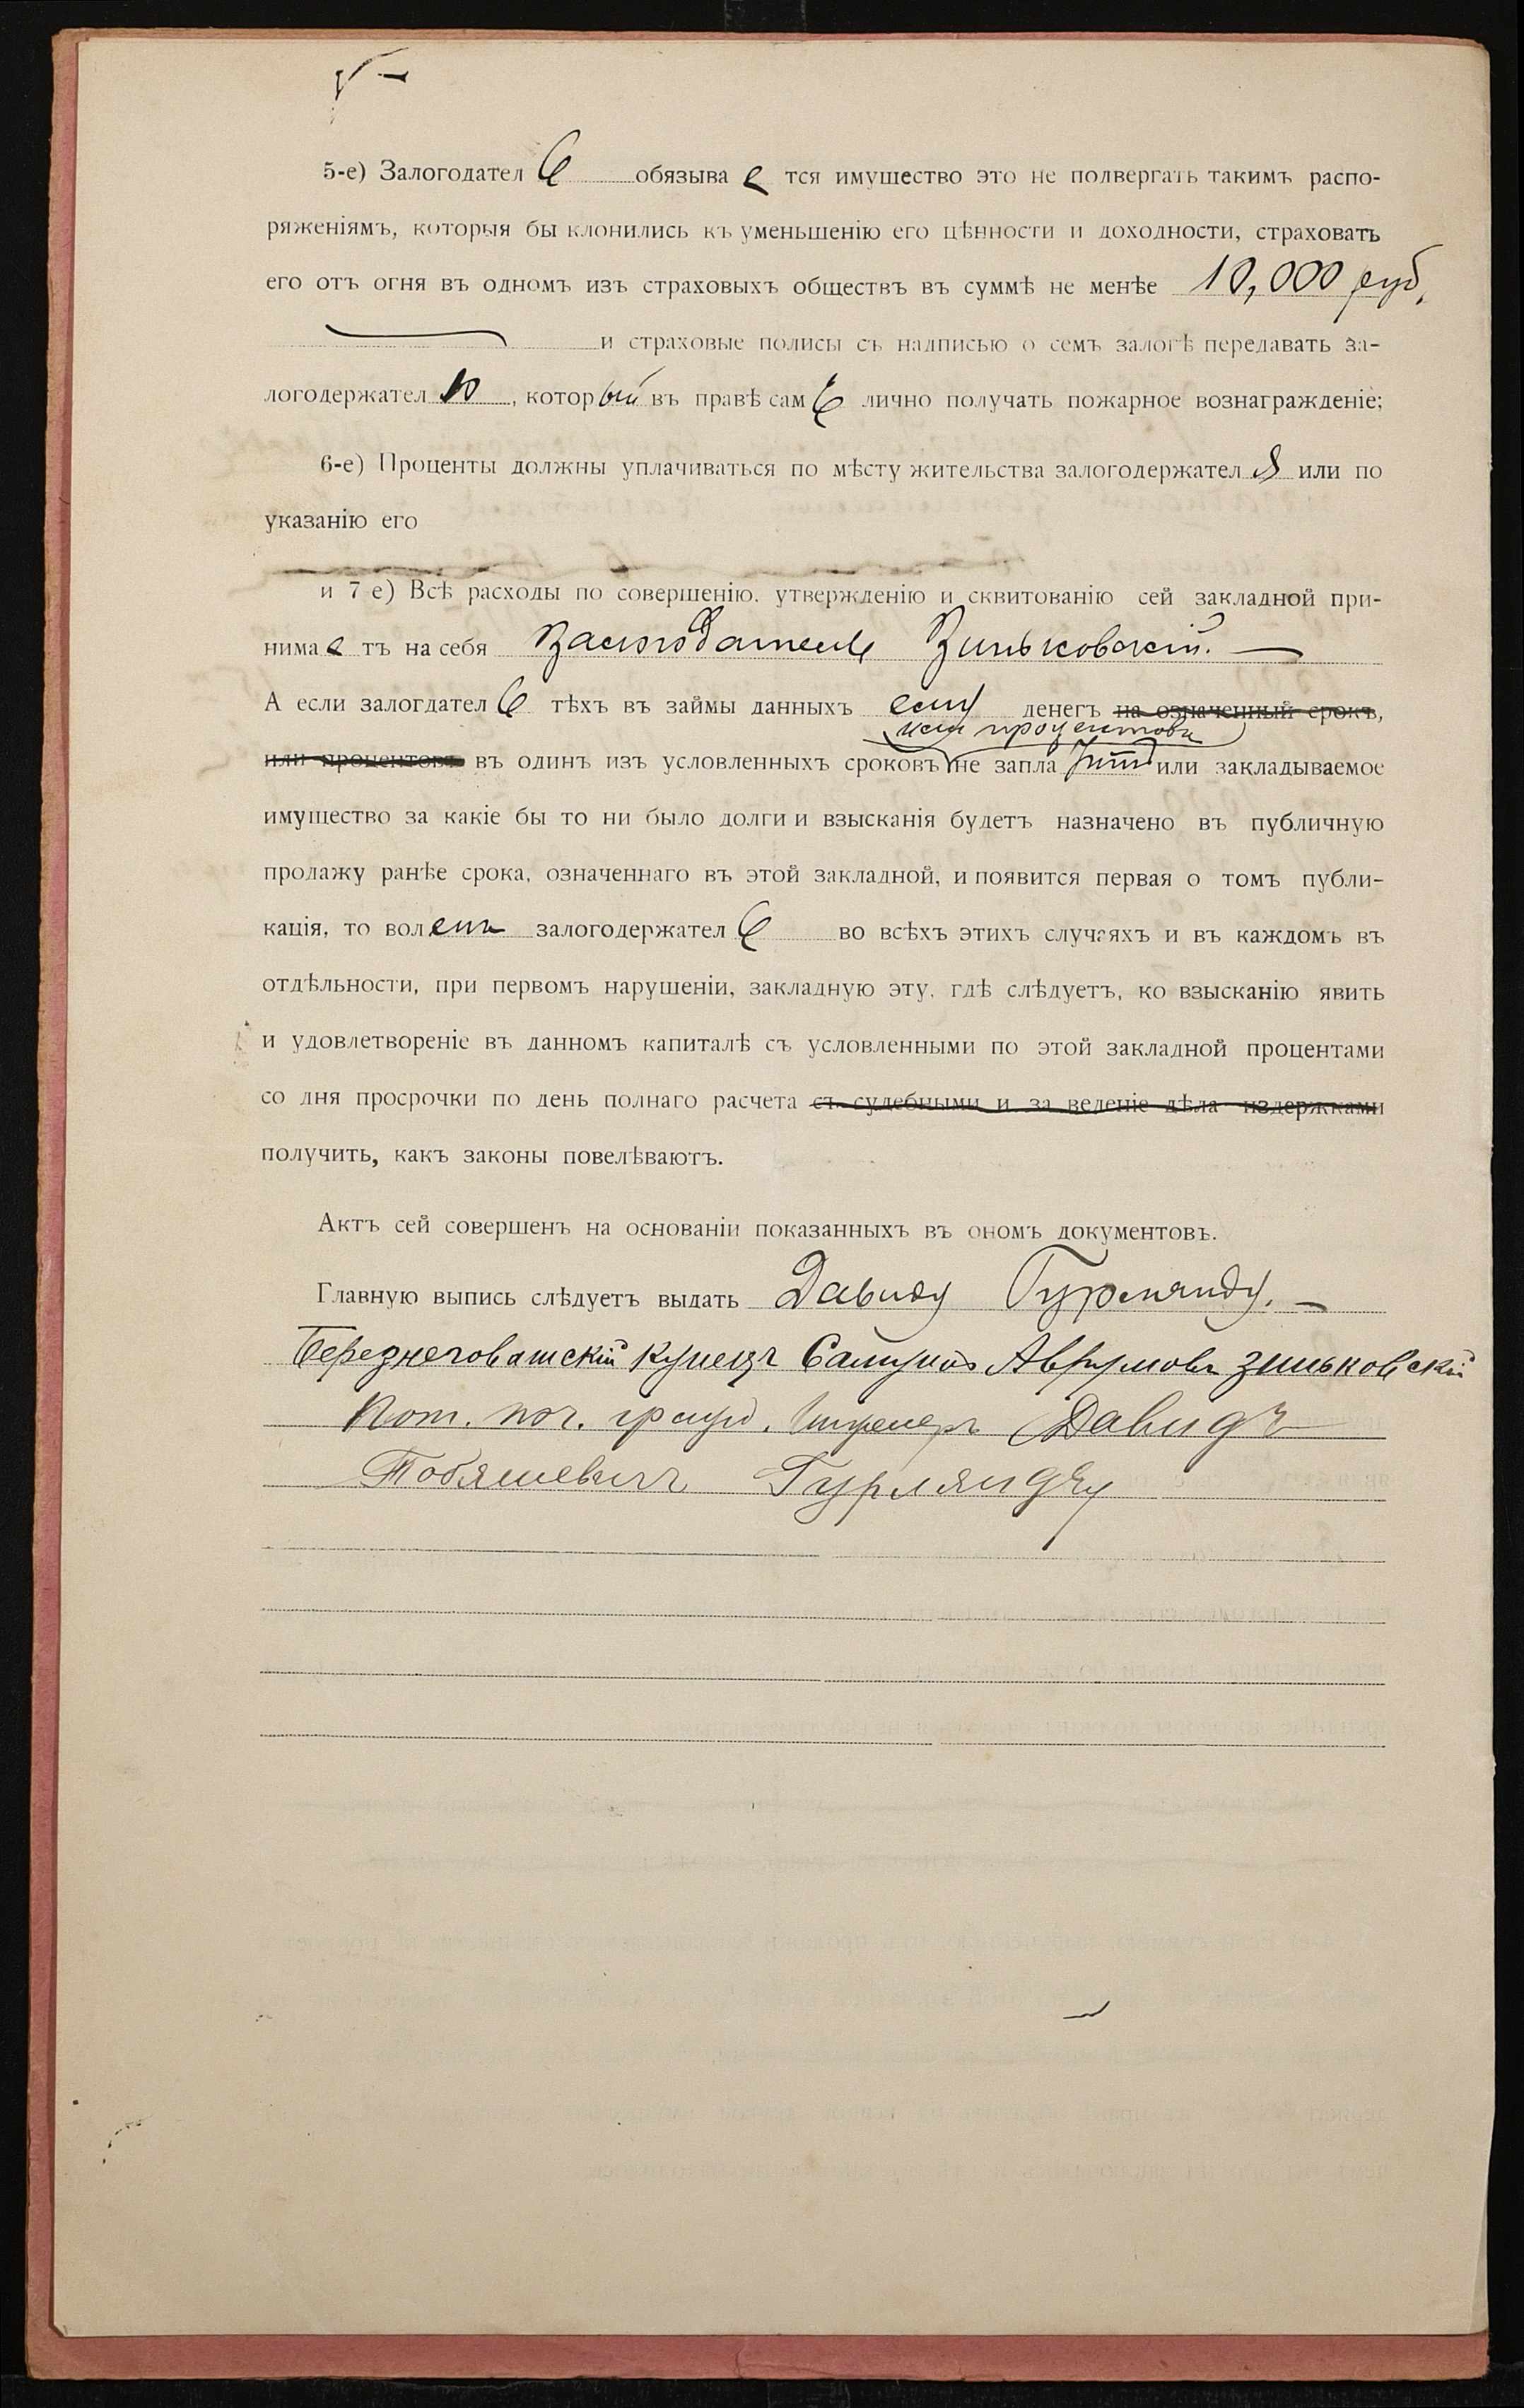 5-е) Залогодатель обязывается имущество это не подвергать такимъ распо-
ряженіямъ, которыя бы клонились къ уменьшенію его цѣнности и доходности, страховать
его отъ огня въ одномъ изъ страховыхъ обществъ въ суммѣ не менѣе 10,000 руб,
и страховые полисы съ надписью о семъ залогѣ передавать за-
логодержателю, который въ правѣ самъ лично получать пожарное вознагражденіе;
6-е) Проценты должны уплачиваться по мѣсту жительства залогодержателя или по
указанію его
и 7 е) Всѣ расходы по совершенію, утвержденію и сквитованію сей закладной при-
нимаетъ на себя Залогодатель Зиньковскій.
А если залогдатель тѣхъ въ займы данныхъ ему денегъ на означенный срокъ,
или процентовъ
или процентовъ въ одинъ изъ условленныхъ сроковъ не заплатитъ или закладываемое
имущество за какіе бы то ни было долги и взысканія будетъ назначено въ публичную
продажу ранѣе срока, означеннаго въ этой закладной, и появится первая о томъ публи-
кація, то воленъ залогодержатель во всѣхъ этихъ случаяхъ и въ каждомъ въ
отдѣльности, при первомъ нарушеніи, закладную эту, гдѣ слѣдуетъ, ко взысканію явить
и удовлетвореніе въ данномъ капиталѣ съ условленными по этой закладной процентами
со дня просрочки по день полнаго расчета съ судебными и за веденіе дѣла издержками
получить, какъ законы повелѣваютъ.
Актъ сей совершенъ на основаніи показанныхъ въ ономъ документовъ.
Главную выпись слѣдуетъ выдать Давиду Гурлянду.
Береднеговатскій купецъ Самуилъ Аврумовъ Зиньковскій
Пот. поч. гражд. Инженеръ Давидъ
Тобяшевичъ Гурляндъ